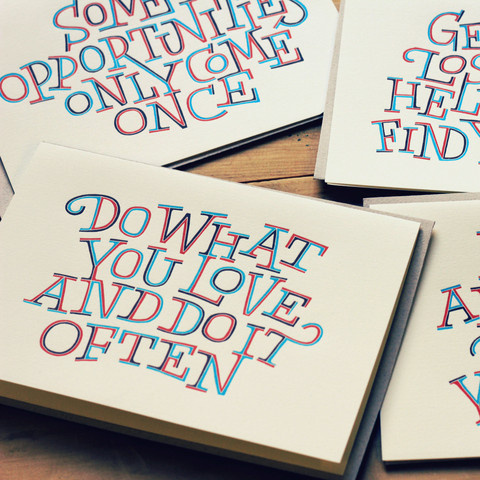 SOME
OPPORTUNITIES
ONLY COME
ONCE
GE
LO
HEL
FIND Y
DO WHAT
YOU LOVE
AND DO IT
OFTEN
A
Y